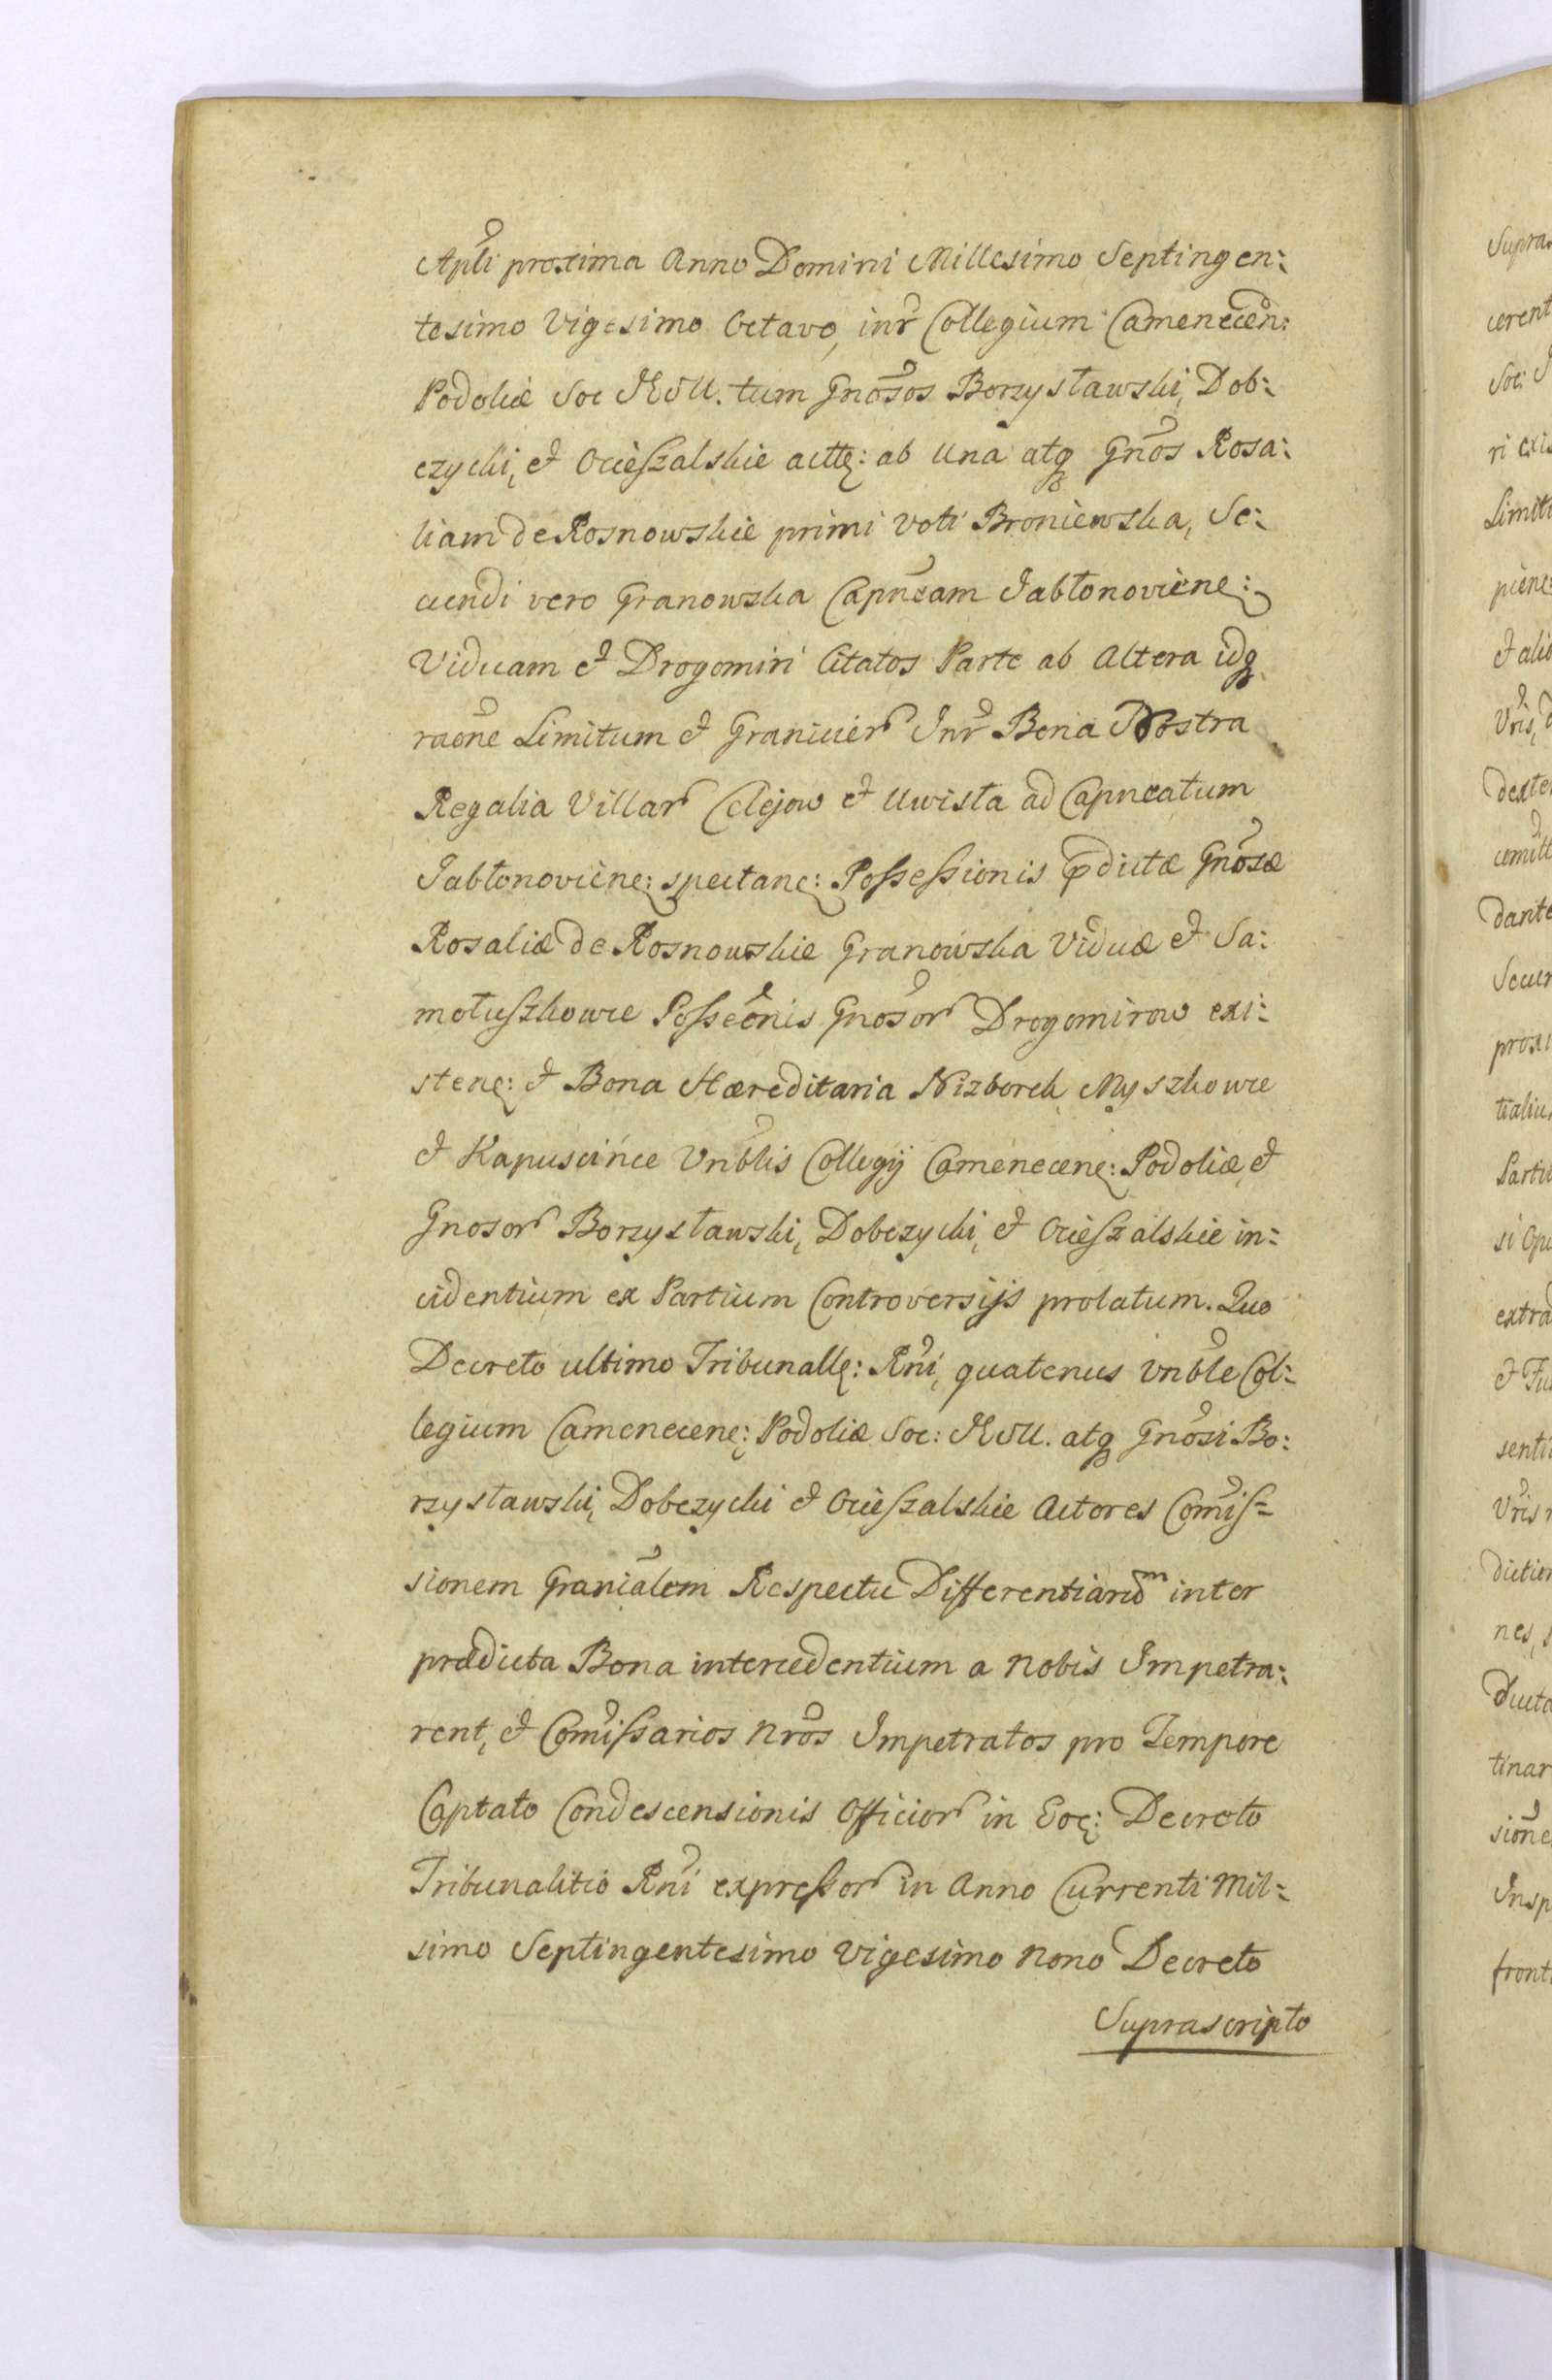 Apłi proxima Anno Domini Millesimo Septingen:
tesimo Vigesimo Octavo, inr Collegium Camenecen:
Podoliæ Soc JESU. tum Gnosos Borzysławski, Dob:
czycki, et Ocieszalskie actt: ab Una atq Gnos Rosa:
liam de Rosnowskie primi voti Broniewska, Se:
cundi vero Granowska Capneam Jabłonoviene:
Viduam et Drogomiri Citatos Parte ab Altera idq
raone Limitum et Granicier Inr Bona Nostra
Regalia Villar Celejow et Uwisła ad Capneatum
Jabłonoviene: spectane: Possessionis pdictæ Gnosæ
Rosaliæ de Rosnowskie Granowska Viduæ et Sa:
motuszkowce Posseonis Gnosor Drogomirow exi:
stene: et Bona Hæreditaria Nizborek Myszkowce
et Kapuscince Vnblis Collegij Camenecene: Podoliæ, et
Gnosor Borzysławski, Dobczycki, et Ocieszalskie in:
cidentium ex Partium Controversijs prolatum. Quo
Decreto ultimo Tribunall: Rni, quatenus Vnble Col:
legium Camenecene: Podoliæ Soc: JESU. atq Gnosi Bo:
rzysławski, Dobczycki et Ocieszalskie Actores Comis=
sionem Granialem Respectu Differentiarum inter
prædicta Bona intercedentium a Nobis Impetra:
rent, et Comissarios Nros Impetratos pro Tempore
Captato Condescensionis Officior in Eoc: Decreto
Tribunalitio Rni expressor in Anno Currenti Mil=
simo Septingentesimo Vigesimo Nono Decreto
Suprascripto